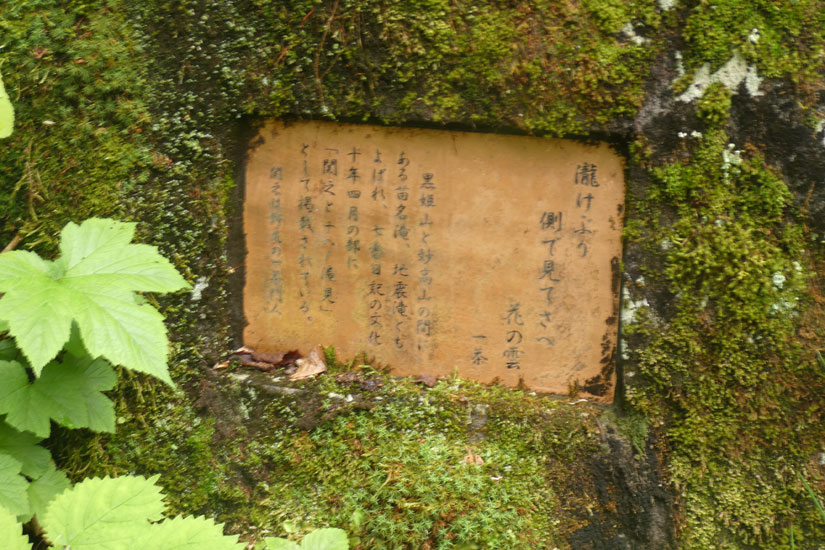 瀧けぶり
側で見てさへ
花の雲
一茶
黒姫山と妙高山の間に
ある苗名滝、地震滝とも
よばれ、七番日記の文化
十年四月の部に
「関之と二へ滝見」
として掲載されている。
関之は野尻の一茶門人